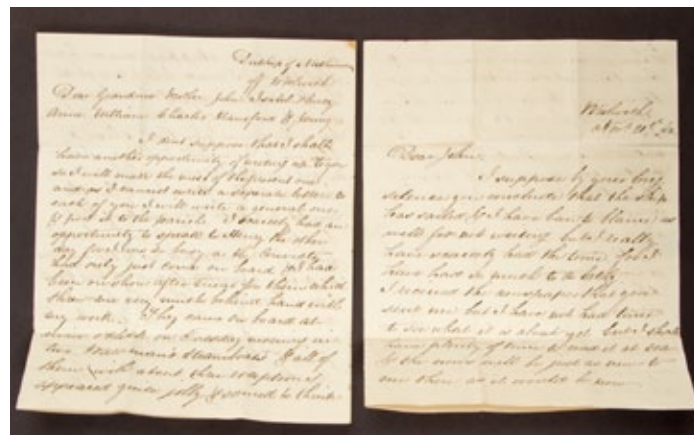 off Woolwich
Dear Grandma Mother John Isabel Henry
Anne William Charles Hansford & Jenny
I dont suppose that I shall
have another opportunity of writing to you
so I will make the most of the present one
and as I cannot write a separate letter to
each of you I will write a general one
& post it to the parish. I scarcely had an
opportunity to speak to Henry the other
day for I was so busy as the Convicts
had only just come on board & I had
been on shore after things for them which
threw me very much behind hand with
my work. They came on board at
on Tuesday morning in
two Steamboats & all of
them with about three exceptions
appeared quite jolly & seemed to think
Woolwich
Novr 20th
Dear John
I suppose by your long
silence you conclude that the ship
has sailed & I have been to blame as
well for not writing but I really
have scarcely had the time for I
have had so much to do lately
I received the newspaper that you
sent me but I have not had time
to see what it is about yet but I shall
have plenty of time to read it at sea
& the news will be just as new to
me then as it would be now